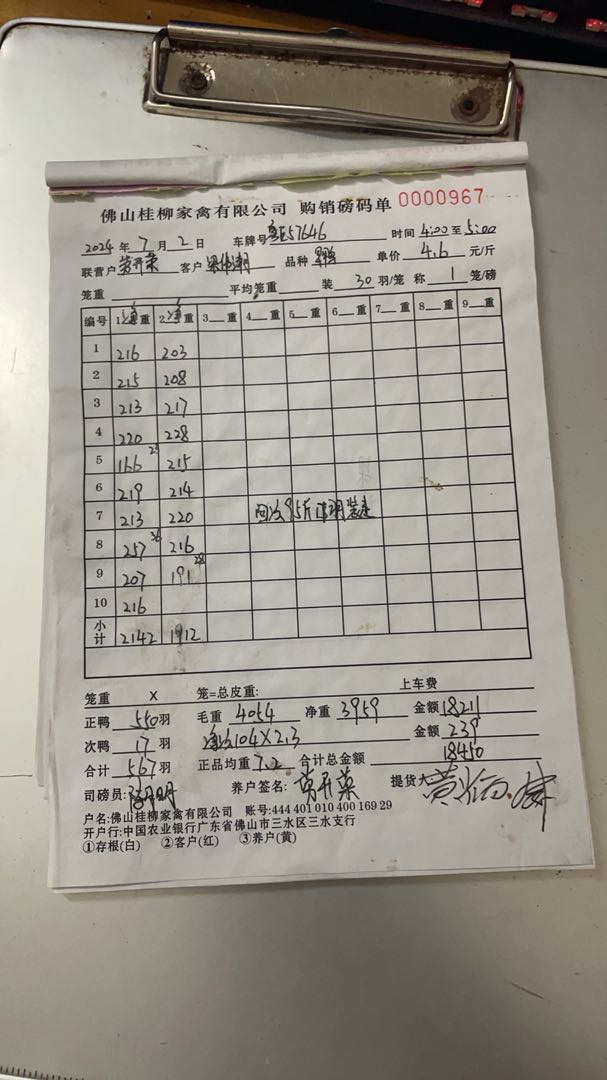 佛山桂柳家禽有限公司 购销磅码单 0000967
2024 年 7 月 2 日 车牌号 57646 时间 4:00 至 5:00
联营户 劳开荣 客户 品种 单价 4.6 元/斤
笼重 平均笼重 装 30 羽/笼 称 1 笼/磅
编号 1 净 重 2 净 重 3 重 4 重 5 重 6 重 7 重 8 重 9 重
1 216 203
2 215 208
3 213 217
4 220 228
5 166 215
6 219 214
7 213 220
8 257 36 216
9 207 191 28
10 216
小计 2142 1912
笼重 X 笼=总皮重: 上车费
正鸭 550 羽 毛重 4054 净重 3959 金额 18211
次鸭 17 羽 104X2.3 金额 239
合计 567 羽 正品均重 7.2 合计总金额 18450
司磅员: 养户签名: 劳开荣 提货人
户名:佛山桂柳家禽有限公司 账号:444 401 010 400 169 29
开户行:中国农业银行广东省佛山市三水区三水支行
①存根(白) ②客户(红) ③养户(黄)